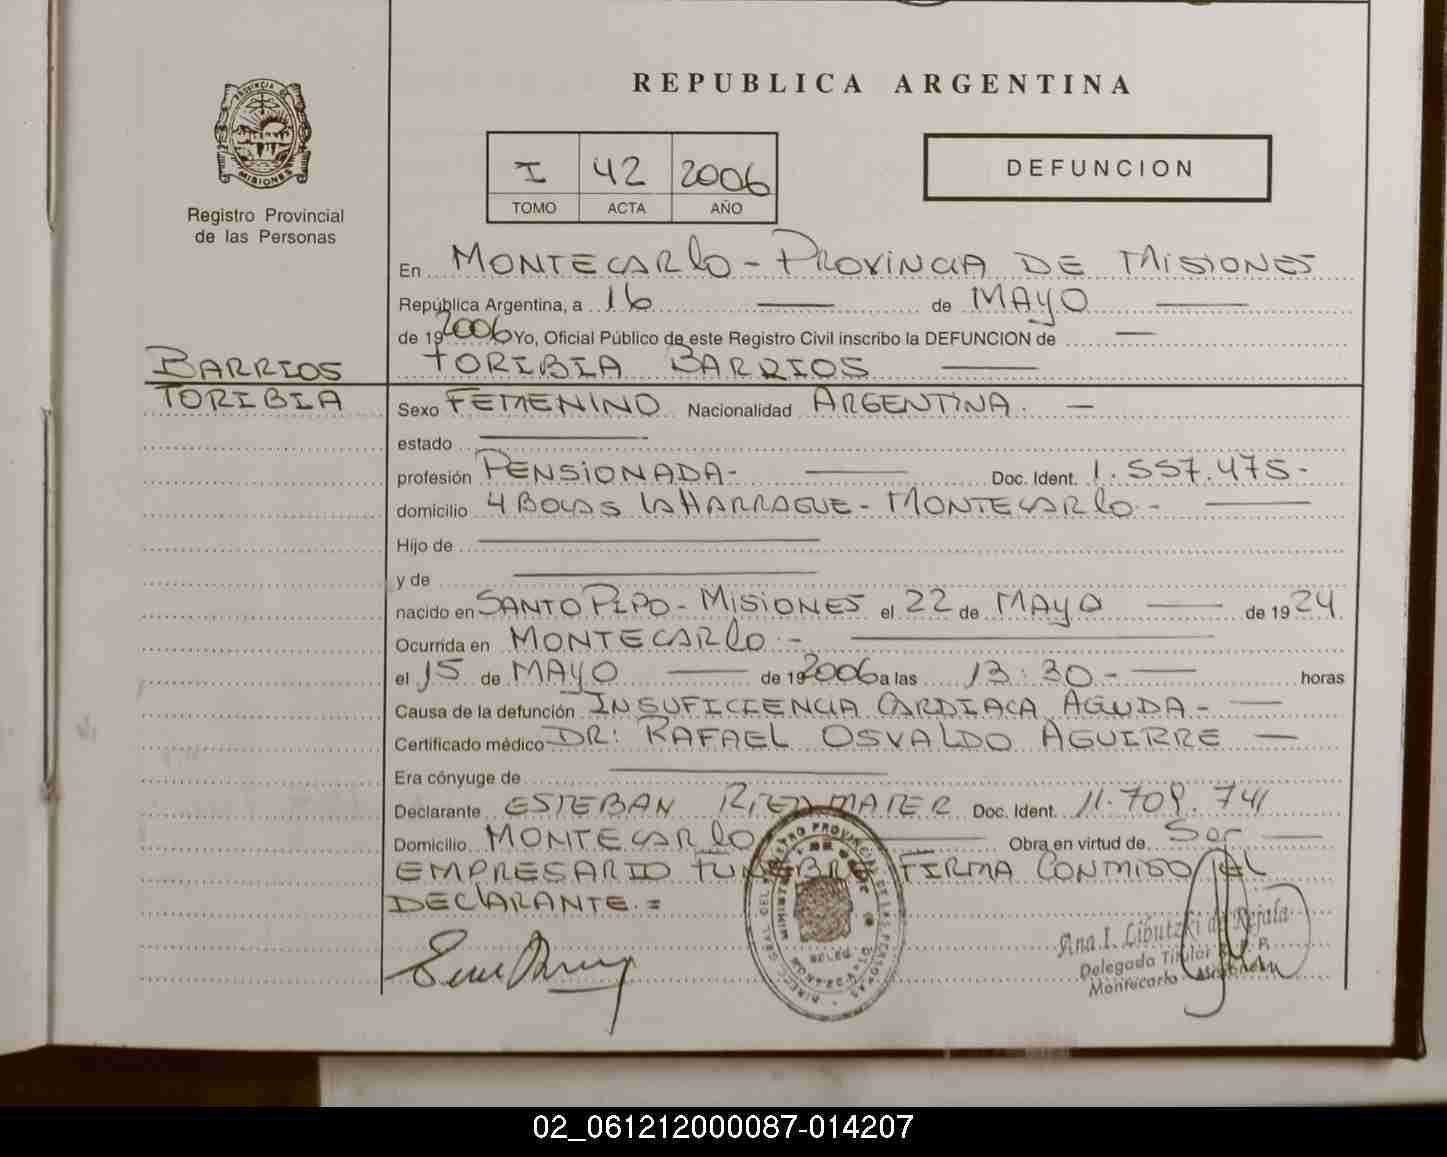 REPUBLICA ARGENTINA
PROVINCIA DE
MISIONES
Registro Provincial
de las Personas
I 42 2006
TOMO ACTA AÑO
DEFUNCION
En MONTECARLO - PROVINCIA DE MISIONES
República Argentina, a 16 — de MAYO —
de 19 2006 Yo, Oficial Público de este Registro Civil inscribo la DEFUNCION de —
TORIBIA BARRIOS —
BARRIOS
TORIBIA
Sexo FEMENINO Nacionalidad ARGENTINA. —
estado —
profesión PENSIONADA- — Doc. Ident. 1.557.475-
domicilio 4 BOCAS LAHARRAGUE - MONTECARLO - —
Hijo de —
y de —
nacido en SANTO PIPO - MISIONES el 22 de MAYO — de 1924
Ocurrida en MONTECARLO - —
el 15 de MAYO — de 19 2006 a las 13:30 - — horas
Causa de la defunción INSUFICIENCIA CARDIACA AGUDA - —
Certificado médico DR: RAFAEL OSVALDO AGUIRRE —
Era cónyuge de —
Declarante ESTEBAN Doc. Ident. 11.709.741
Domicilio MONTECARLO — Obra en virtud de Ser —
EMPRESARIO FUNEBRE FIRMA CONMIGO EL
DECLARANTE.=
Ana I. Libutzki de Rejala
Delegada Titular R.P.P.
Montecarlo Misiones
02_061212000087-014207